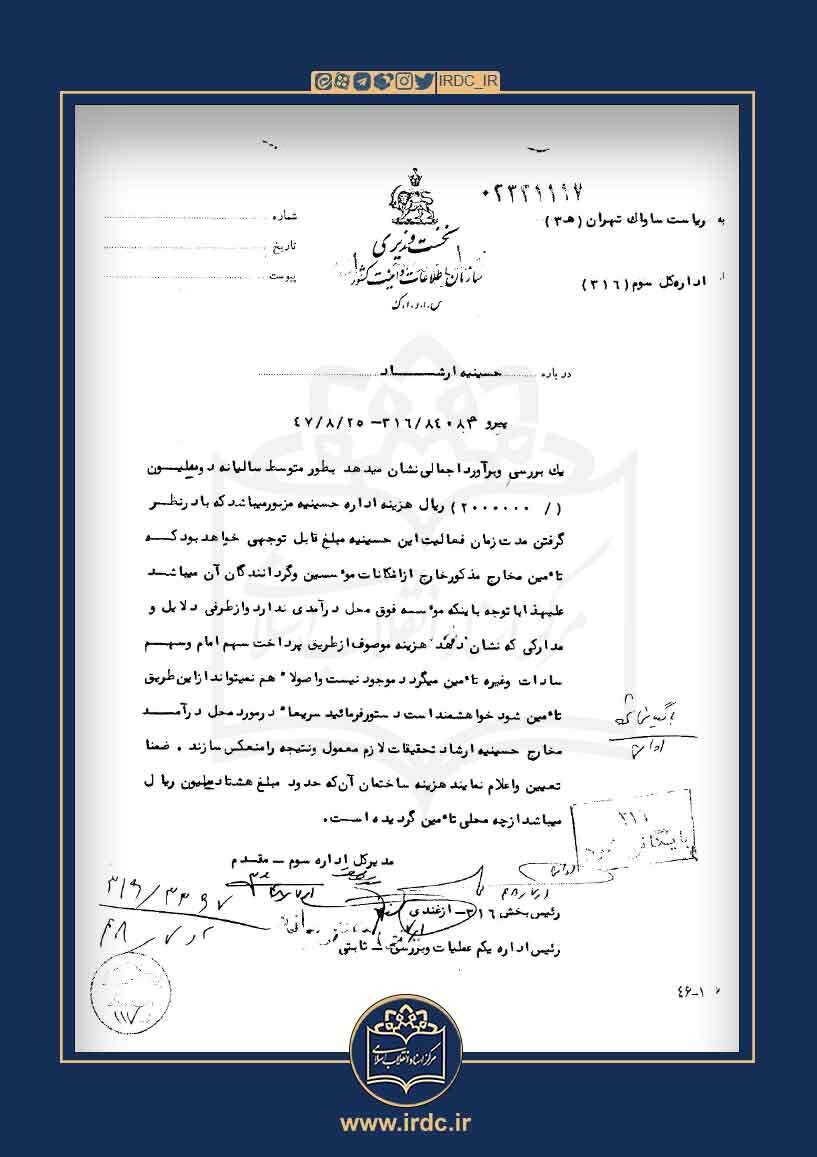 IRDC_IR
۰۲۳۳۹۱۱۹۷
به ریاست ساواک تهران (هـ ۳)
اداره کل سوم (۳۱۶)
نخست وزیری
سازمان اطلاعات و امنیت کشور
س.ا.و.ا.ک
شماره
تاریخ
پیوست
درباره حسینیه ارشاد
پیرو ۳۱۶/۸۴۰۸۴ – ۴۷/۸/۲۵
یک بررسی وبرآورد اجمالی نشان میدهد بطور متوسط سالیانه دومیلیون
(/ ۲۰۰۰۰۰۰) ریال هزینه اداره حسینیه مزبور میباشد که با در نظر
گرفتن مدت زمان فعالیت این حسینیه مبلغ قابل توجهی خواهد بود که
تاٴمین مخارج مذکور خارج از امکانات موٴسسین وگردانندگان آن میباشد
علیهذا با توجه باینکه موٴسسه فوق محل درآمدی ندارد واز طرفی دلایل و
مدارکی که نشان دهد هزینه موصوف از طریق پرداخت سهم امام وسهم
سادات وغیره تاٴمین میگردد موجود نیست واصولا" هم نمیتواند از این طریق
تاٴمین شود خواهشمند است دستور فرمائید سریعا" در مورد محل درآمد
مخارج حسینیه ارشاد تحقیقات لازم معمول ونتیجه را منعکس سازند . ضمنا
تعیین واعلام نمایند هزینه ساختمان آن که حدود مبلغ هشتاد میلیون ریال
میباشد از چه محلی تاٴمین گردیده است.
۳۱۶
بایگانی
مدیر کل اداره سوم – مقدم
رئیس بخش ۳۱۶ – ازغندی
رئیس اداره یکم عملیات وبررسی – ثابتی
۴۶-۱
مرکز اسناد انقلاب اسلامی
www.irdc.ir